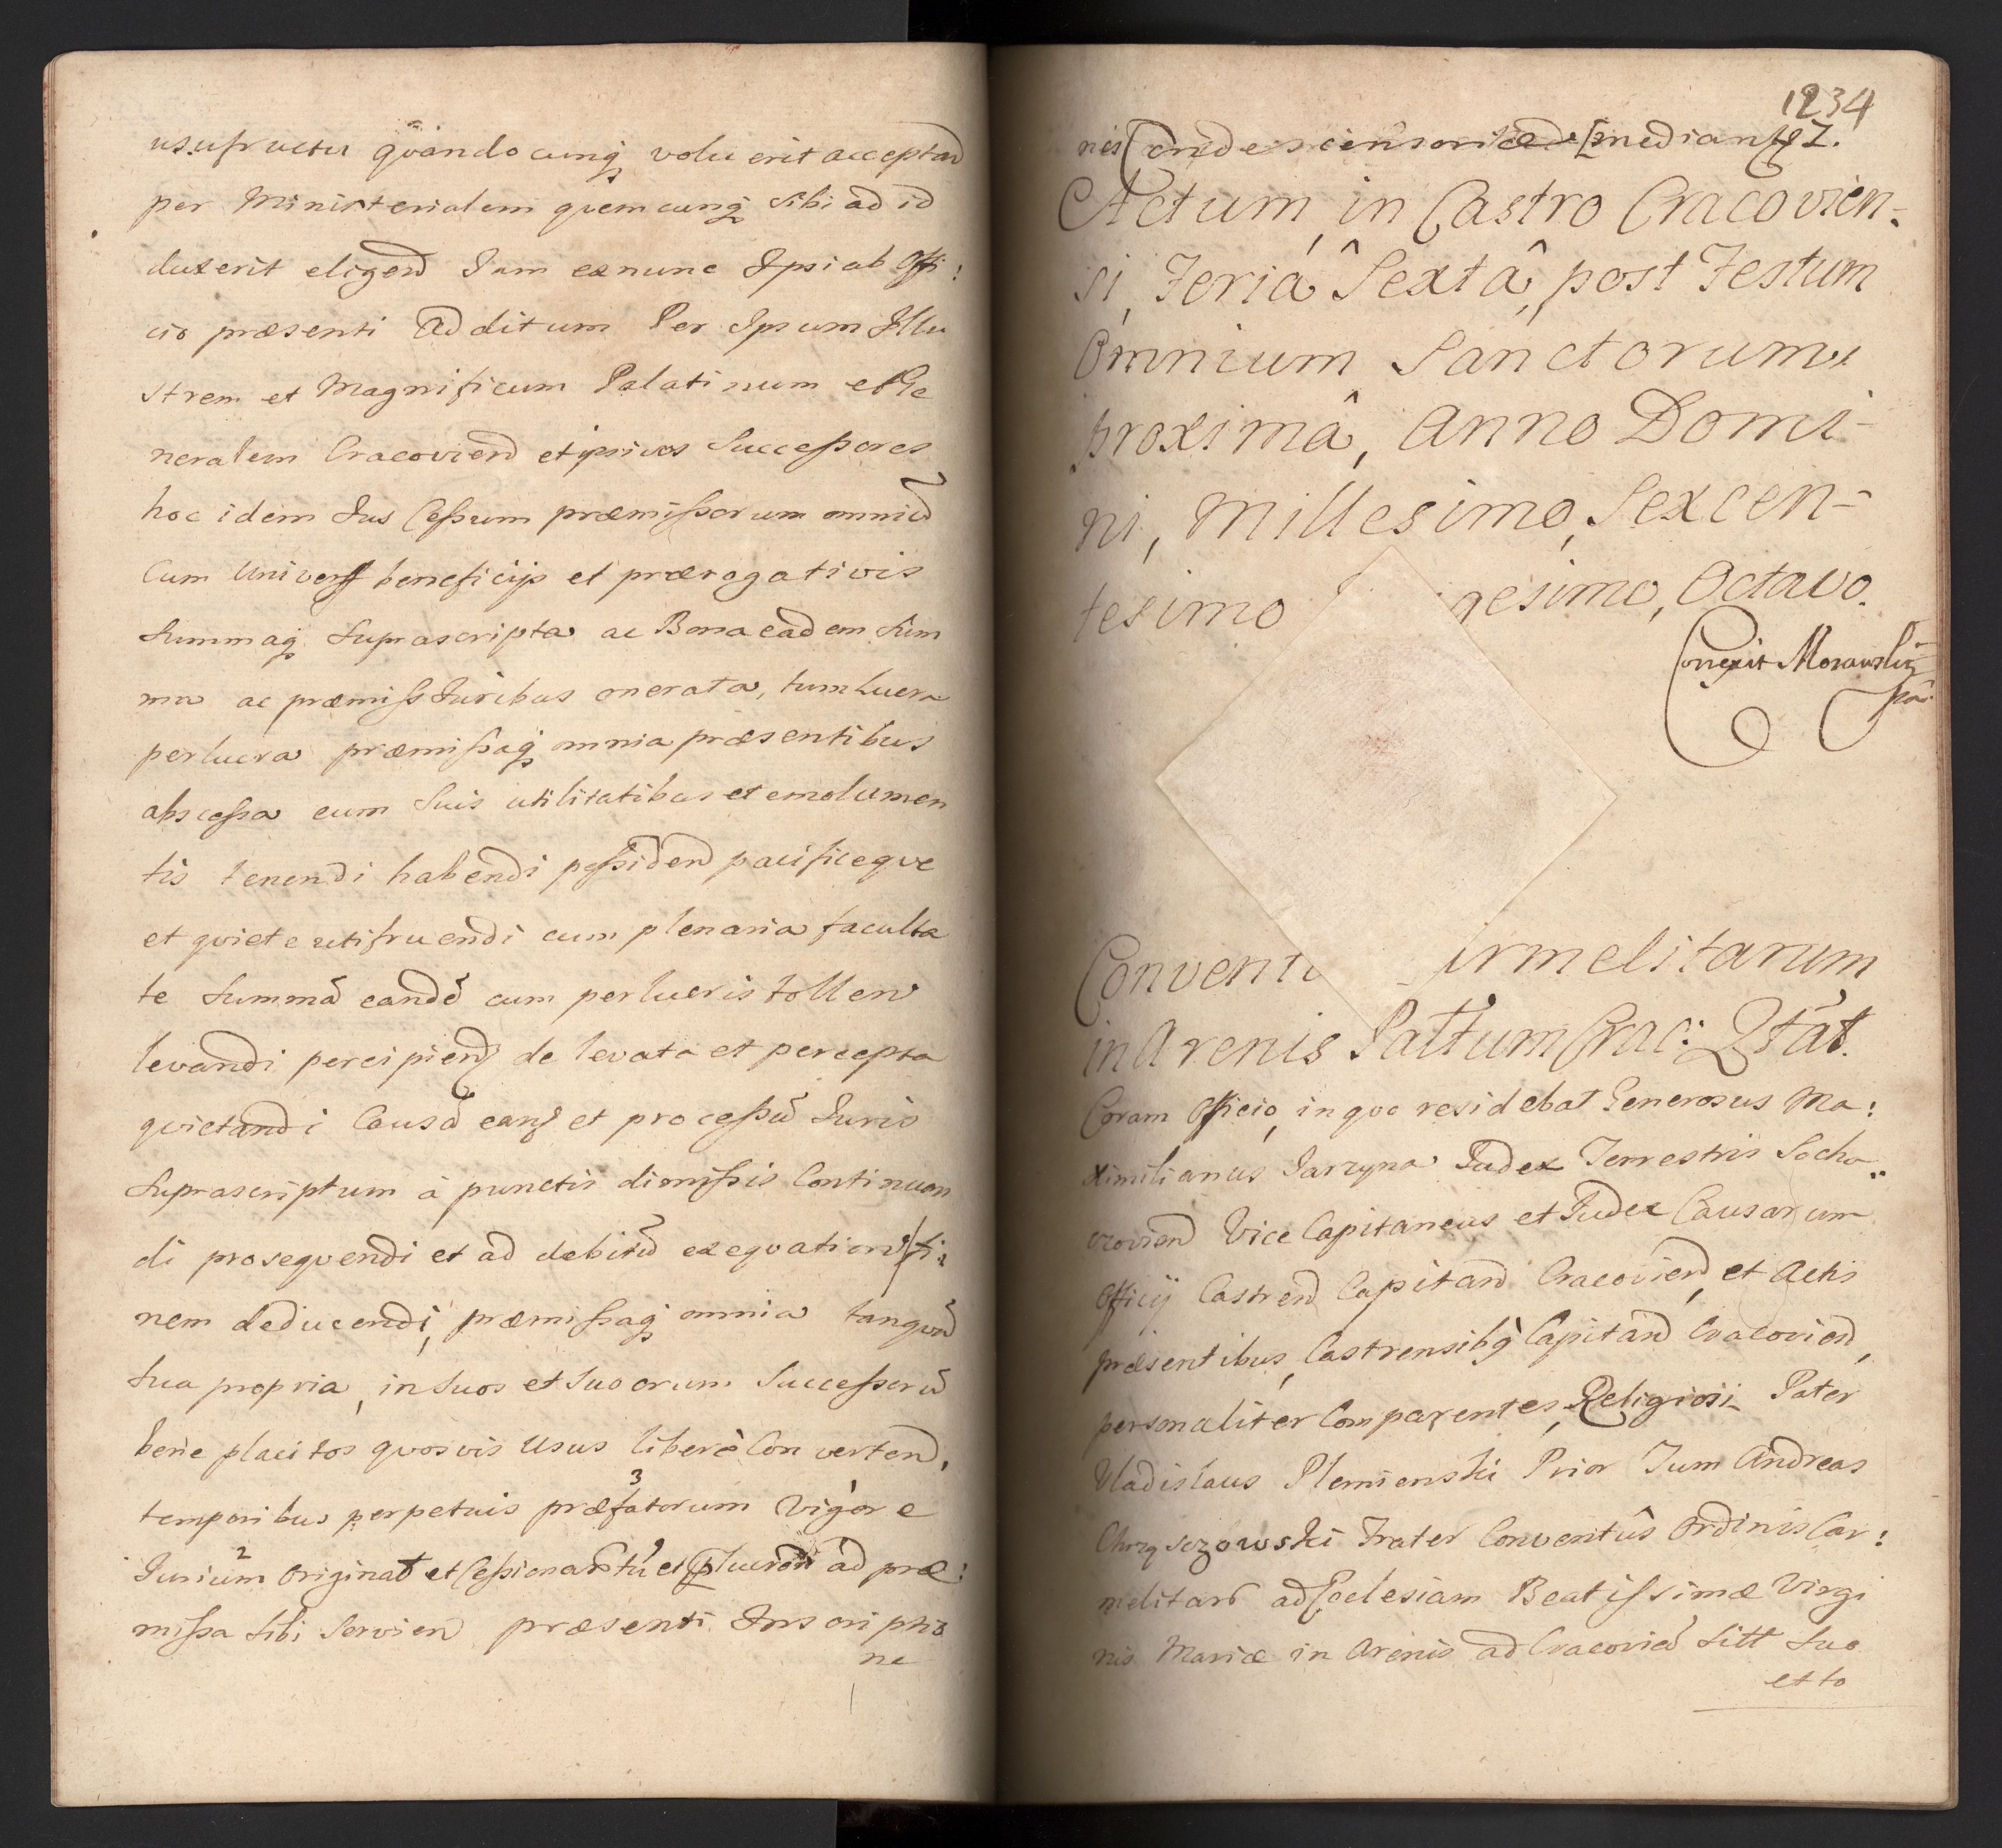 usufructu quandocunq voluerit acceptand
per Ministerialem quemcunq sibi ad id
duxerit eligend Jam ex nunc Ipsi ab Offi:
cio præsenti additum Per Ipsum Illu
strem et Magnificum Palatinum et Ge
neralem Cracoviens et ipsius Successores
hoc idem Jus Cessum præmissorum omniũ
Cum Univers beneficijs et prærogativis
Summaq Suprascripta ac Bona eadem Sum
ma ac præmiss Juribus onerata, tum lucra
perlucra præmissaq omnia præsentibus
abscessa cum Suis utilitatibus et emolumen
tis tenendi habendi possidend pacificeque
et quiete utifruendi cum plenaria faculta
te Summã eandẽ cum perlucris tollen
levandi percipiend de levata et percepta
quietandi Causã eand et processũ Juris
Suprascriptum à punctis dimissis Continuan
di prosequendi et ad debitũ exequation fi:
nem deducendi, præmissaq omnia tanquã
Sua propria, in Suos et Suorum Successorũ
bene placitos quosvis Usus liberè Convertend,
temporibus perpetuis præfatorum Vigore
Jurium Original et Cessionar tũ et perlucrõr ad præ:
missa Sibi Servien præsenti Inscriptio
ne
1234
nis condescensoria mediante.
Actum, in Castro Cracovien-
si, Feriâ Sextâ, post Festum
Omnium Sanctorum,
proximâ, Anno Domi-
ni, Millesimo, Sexcen-
tesimo gesimo, Octavo.
Correxit Morawski
Convent rmelitarum
in Arenis Palt um Crac: Qtat.
Coram Officio, in quo residebat Generosus Ma:
ximilianus Jarzyna Judex Terrestris Socha
czovien Vice Capitaneus et Judex Causarum
Officij Castren Capitan Cracovien, et Actis
præsentibus, Castrensibq Capitan Cracovien,
personaliter Comparentes, Religiosi Pater
Vladislaus Plemienski Prior Tum Andreas
Chrząszczowski Frater Conventûs Ordinis Car:
melitar ad Ecclesiam Beatissimæ Virgi
nis Mariæ in Arenis ad Cracoviã Sitt Suo
et to